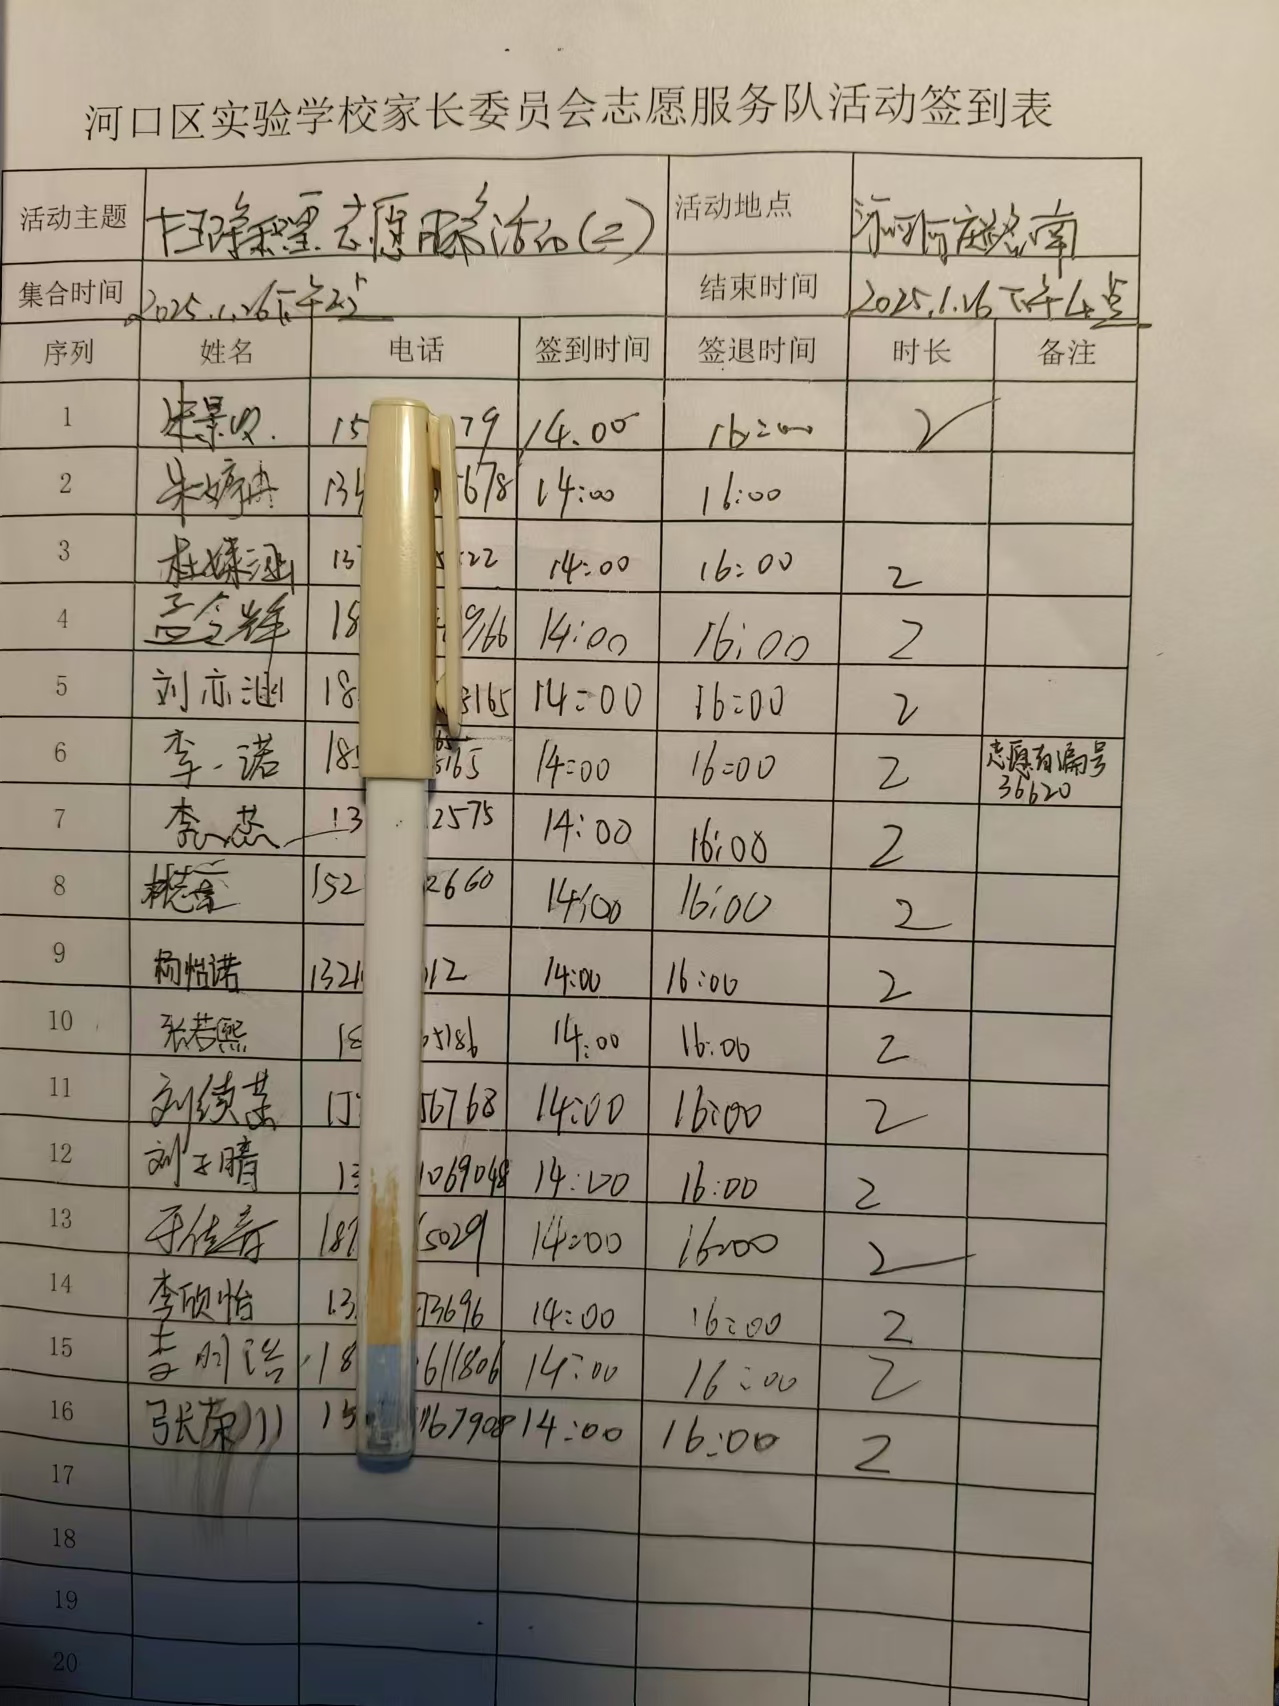 河口区实验学校家长委员会志愿服务队活动签到表
活动主题 志愿服务活动(二) 活动地点 路南
集合时间 2025.1.26下午2点 结束时间 2025.1.26下午4点
序列 姓名 电话 签到时间 签退时间 时长 备注
1 朱景 15 79 14:00 16:00 2
2 朱婷冉 134 5678 14:00 16:00
3 杜姝涵 13 22 14:00 16:00 2
4 孟令辉 18 9166 14:00 16:00 2
5 刘亦涵 18 8165 14:00 16:00 2
6 李一诺 185 5165 14:00 16:00 2 志愿者编号
36620
7 李燕 13 2575 14:00 16:00 2
8 152 2660 14:00 16:00 2
9 杨怡诺 132 012 14:00 16:00 2
10 张若熙 18 5186 14:00 16:00 2
11 刘续 15 56768 14:00 16:00 2
12 刘子晴 13 1069048 14:00 16:00 2
13 于佳 187 5029 14:00 16:00 2
14 李欣怡 13 73696 14:00 16:00 2
15 李明浩 18 611806 14:00 16:00 2
16 张荣川 15 167908 14:00 16:00 2
17
18
19
20